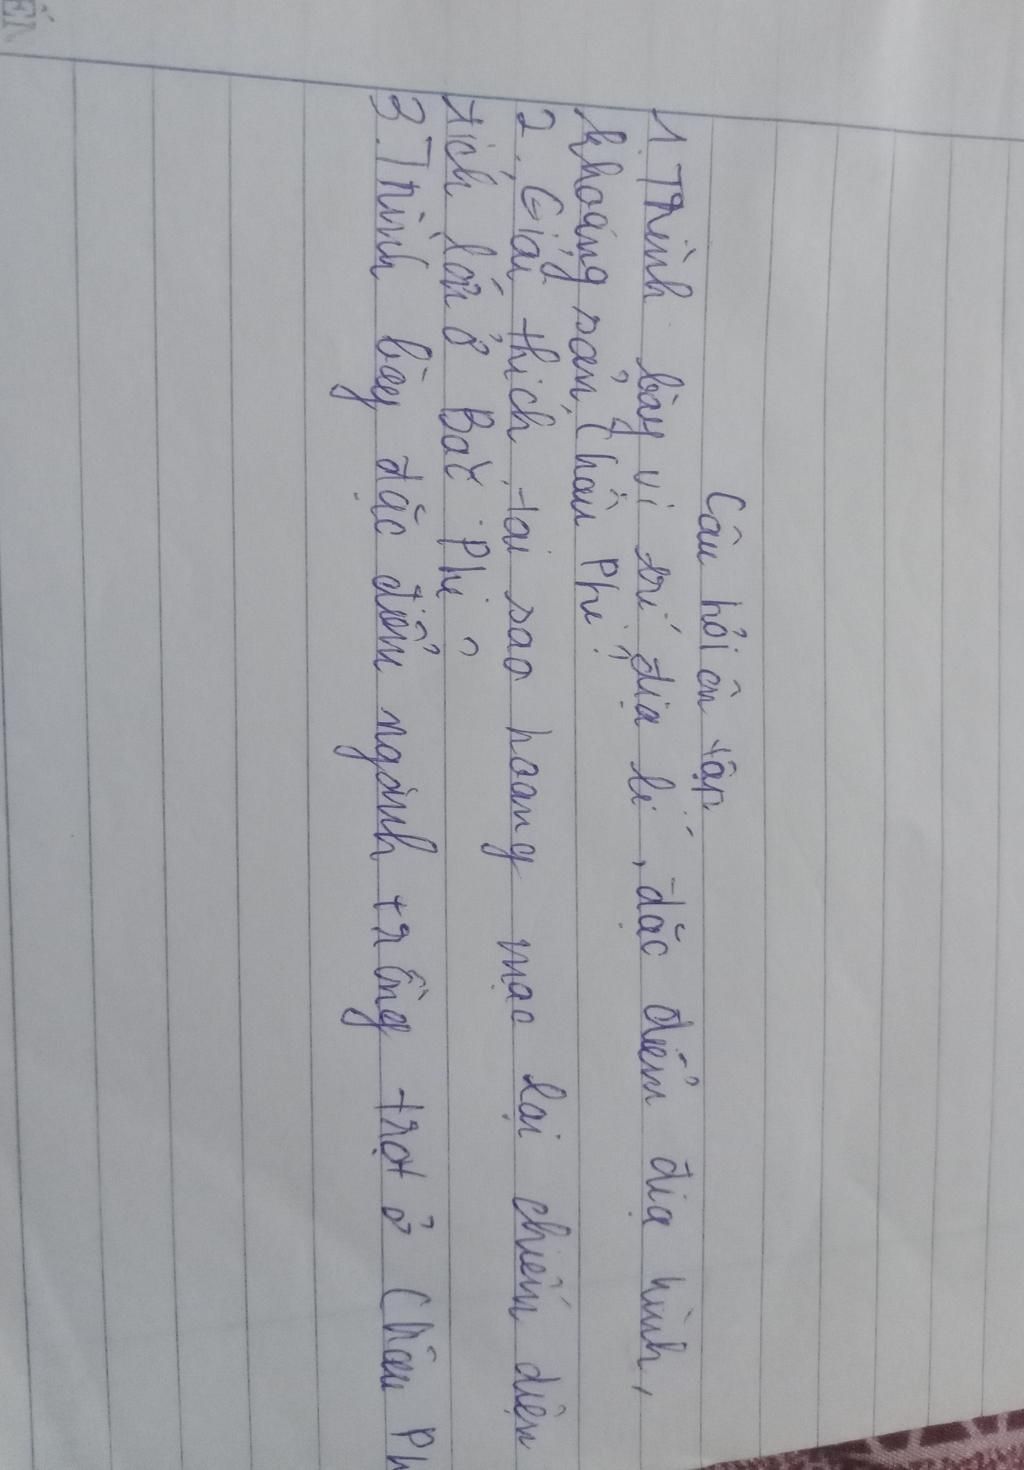 Câu hỏi ôn tập
1 Trình bày vị trí địa lí, đặc điểm địa hình,
khoáng sản Châu Phi?
2, Giải thích tại sao hoang mạc lại chiếm diện
tích lớn ở Bắc Phi?
3. Trình bày đặc điểm ngành trồng trọt ở Châu Ph
ẾN